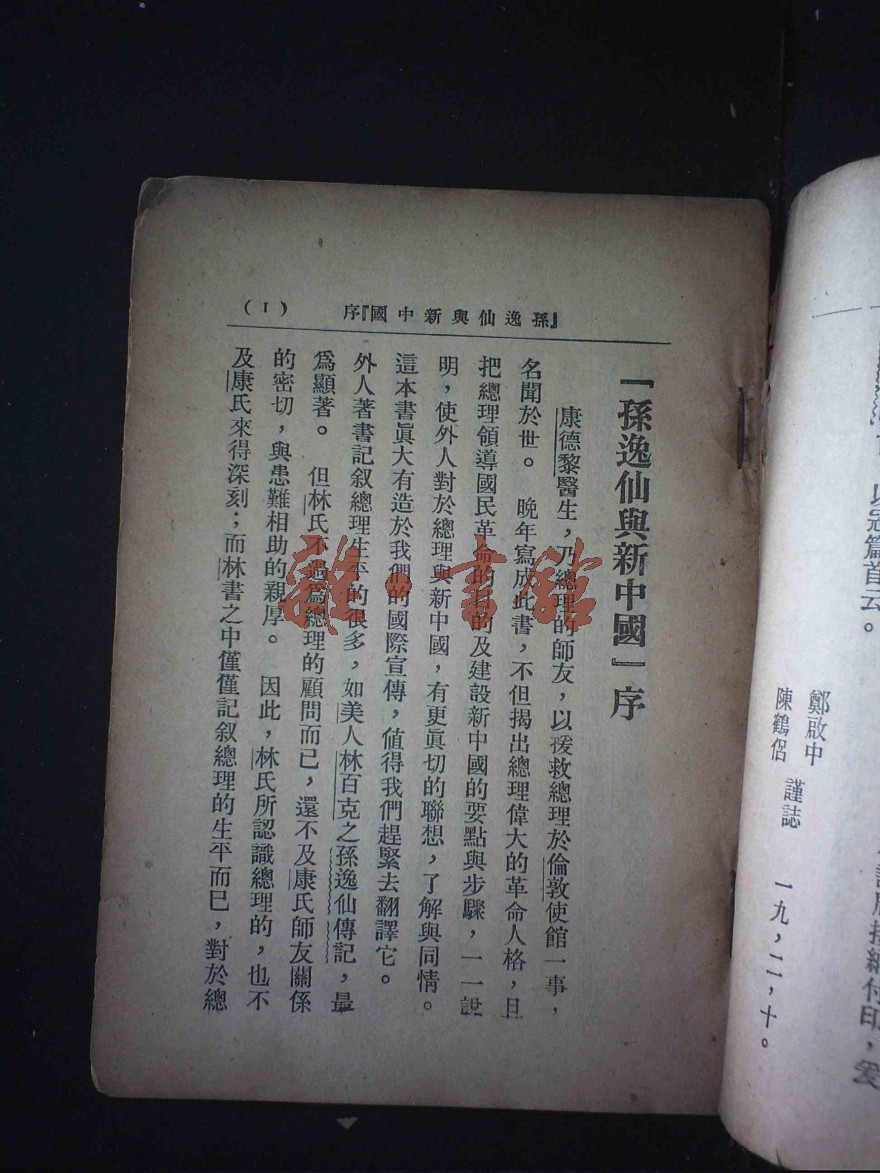 以冠篇首云。
鄭啟中
陳鶴侶 謹誌 一九，二，十。
序『國中新與仙逸孫』 (1)
「孫逸仙與新中國」序
康德黎醫生，乃總理的師友，以援救總理於倫敦使館一事，
名聞於世。 晚年寫成此書，不但揭出總理偉大的革命人格，且
把總理領導國民革命的目的及建設新中國的要點與步驟，一一說
明，使外人對於總理與新中國，有更眞切的聯想，了解與同情。
這本書眞大有造於我們的國際宣傳，值得我們趕緊去翻譯它。
外人著書記叙總理生平的很多，如美人林百克之孫逸仙傳記，最
爲顯著。 但林氏不過爲總理的顧問而已，還不及康氏師友關係
的密切，與患難相助的親厚。 因此，林氏所認識總理的，也不
及康氏來得深刻；而林書之中僅僅記叙總理的生平而已，對於總
雜·書館